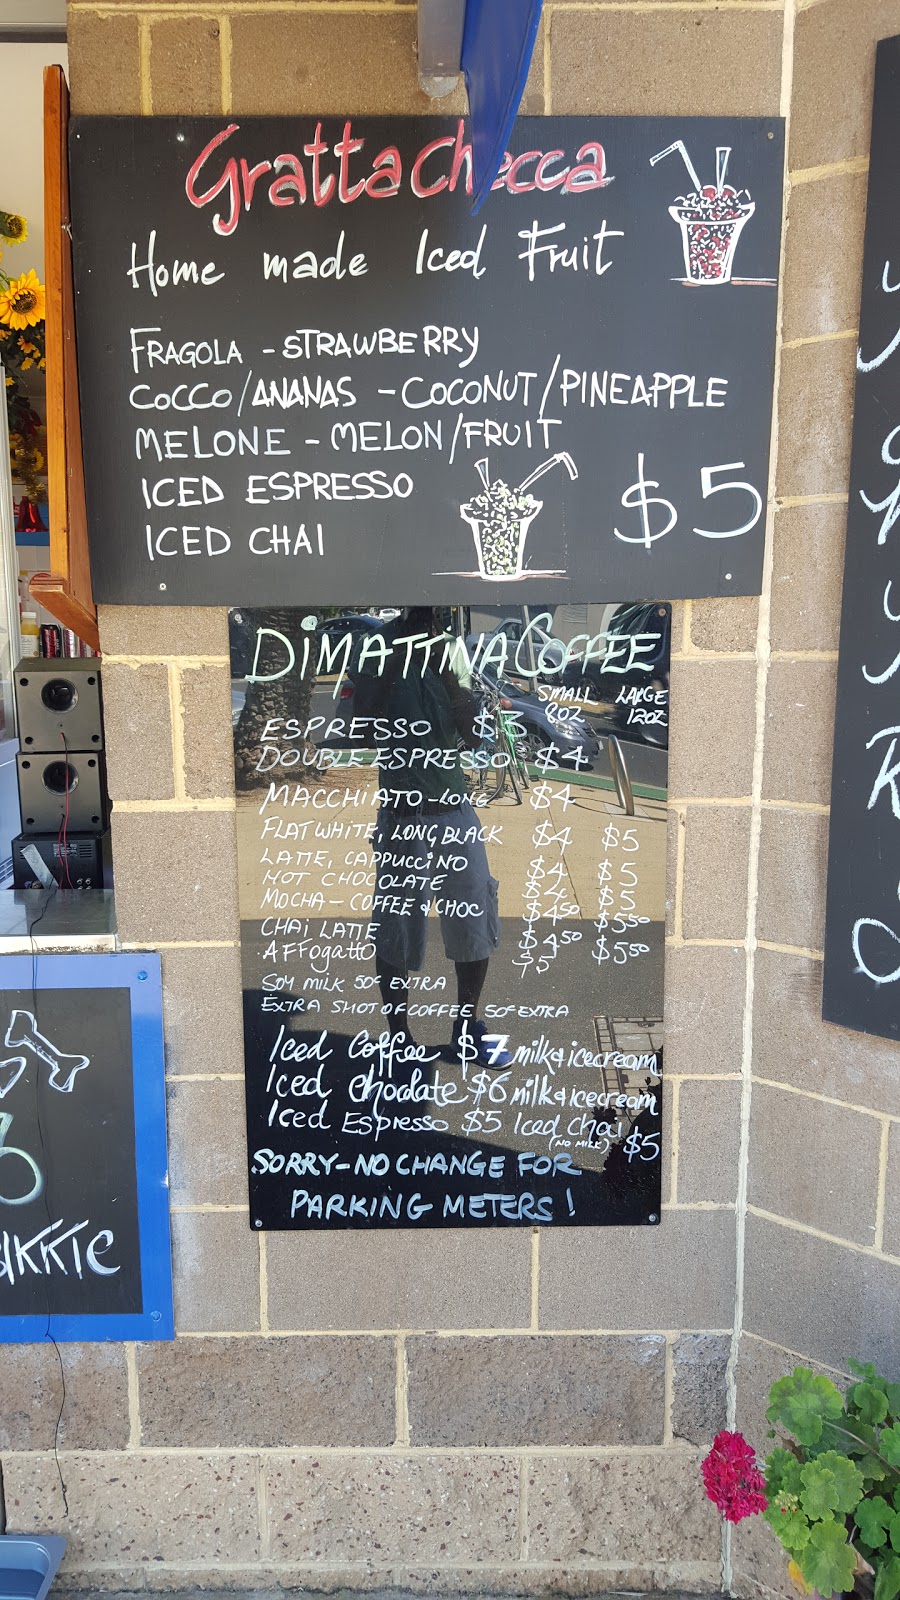 Grattachecca
Home made Iced Fruit
FRAGOLA - STRAWBERRY
COCCO/ANANAS - COCONUT/PINEAPPLE
MELONE - MELON/FRUIT
ICED ESPRESSO
ICED CHAI
$5
DIMATTINA COFFEE
SMALL LARGE
8OZ 12OZ
ESPRESSO $3
DOUBLE ESPRESSO $4
MACCHIATO - LONG $4
FLAT WHITE, LONG BLACK $4 $5
LATTE, CAPPUCCINO $4 $5
HOT CHOCOLATE $4 $5
MOCHA - COFFEE & CHOC $450 $550
CHAI LATTE $450 $550
AFFOgattO $5
SOY MILK 50c EXTRA
EXTRA SHOT OF COFFEE 50c EXTRA
Iced Coffee $7 milk & icecream
Iced chocolate $6 milk & icecream
Iced Espresso $5 Iced chai $5
(NO MILK)
SORRY - NO CHANGE FOR
PARKING METERS!
BIKKIE